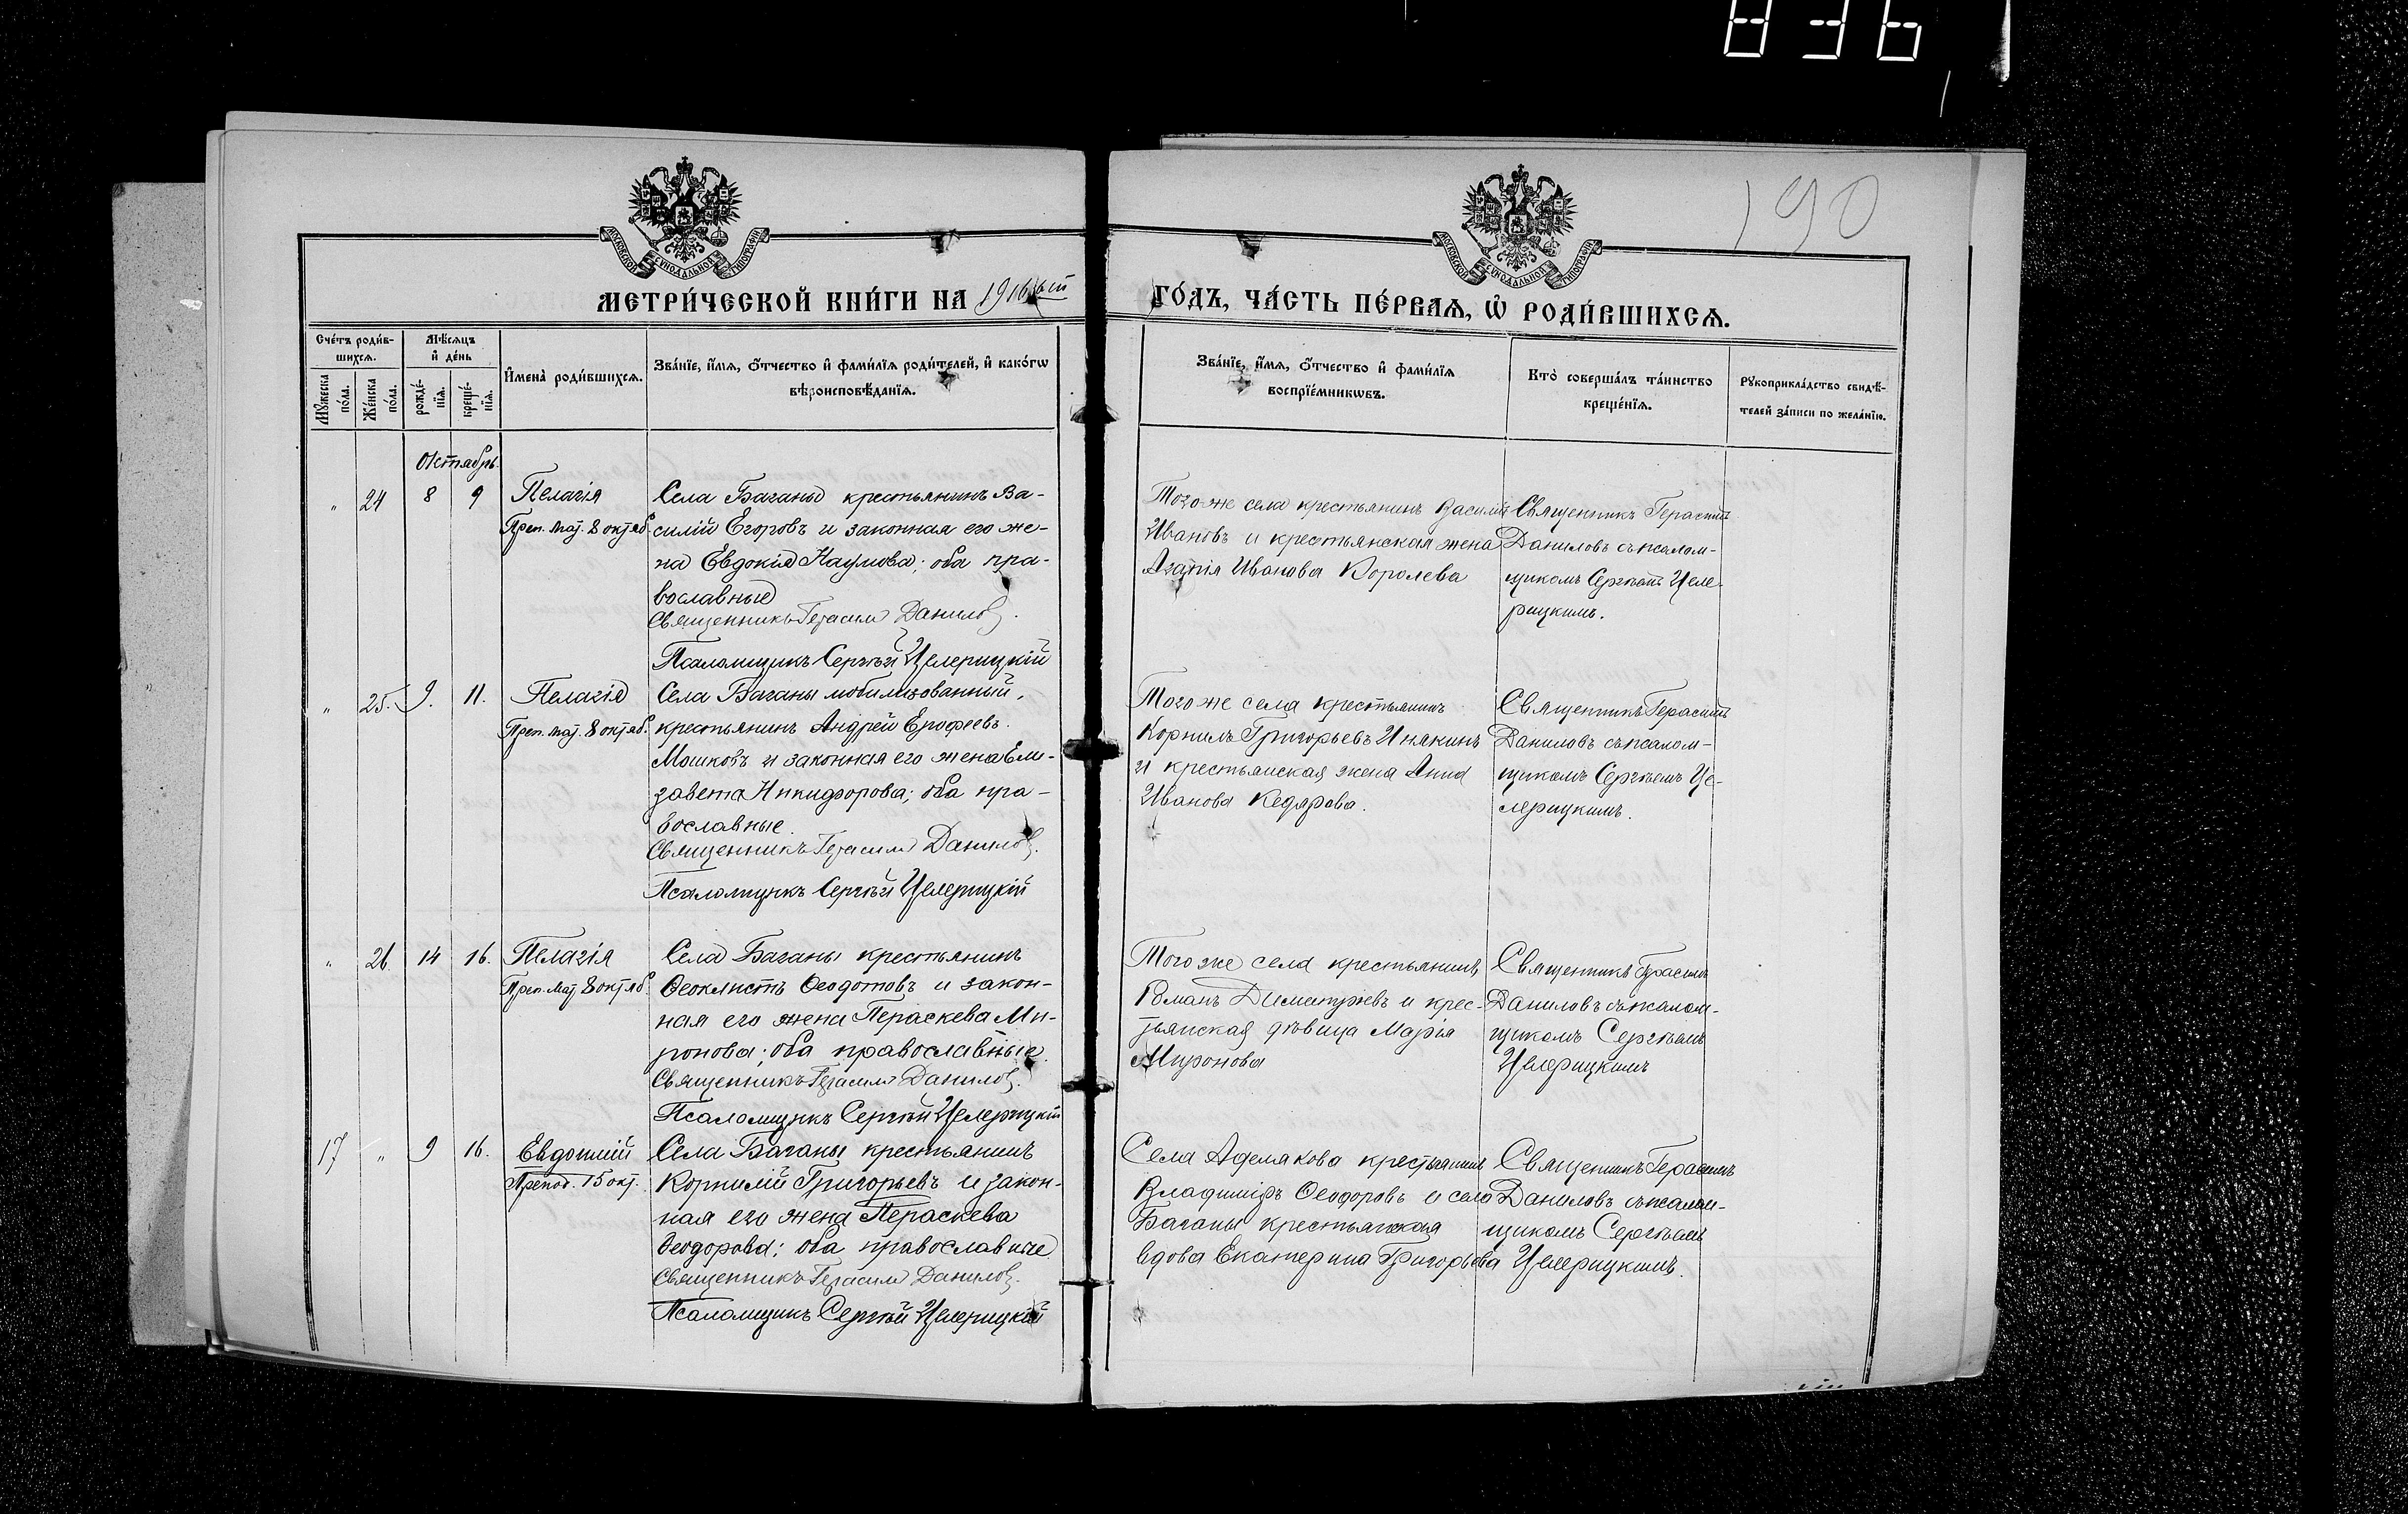 836
190
МОСКОВСКОЙ СУНОДАЛЬНОЙ ТИПОГРАФІИ
МОСКОВСКОЙ СУНОДАЛЬНОЙ ТИПОГРАФІИ
МЕТРИ́ЧЕСКОЙ КНИ́ГИ НА 1916ый
ГО́ДЪ, ЧА́СТЬ ПЕ́РВАѦ, Ѡ҆ РОДИ́ВШИХСѦ.
Сче́тъ роди́в-
шихсѧ.
Мꙋ́жеска
по́ла.
Же́нска
по́ла.
Мѣ́сѧцъ
и҆ де́нь
рожде́-
нїѧ.
креще́-
нїѧ.
И҆мена̀ роди́вшихсѧ.
Зва́нїе, и҆́мѧ, ѻ҆́тчество и҆ фами́лїѧ роди́телей, и҆ како́гѡ
вѣроисповѣ́данїѧ.
Зва́нїе, и҆́мѧ, ѻ҆́тчество и҆ фами́лїѧ
воспрїе́мникѡвъ.
Кто̀ соверша́лъ та́инство
креще́нїѧ.
Рꙋкоприкла́дство свидѣ́-
телей за́писи по жела́нїю.
Октябрь.
" 24 8 9
Пелагія
Преп. мат. 8 октяб.
Села Баганы крестьянинъ Ва-
силій Егоровъ и законная его же-
на Евдокія Наумова; оба пра-
вославные
Священникъ Герасим Данилов.
Псаломщикъ Сергѣй Целерицкій
Того-же села крестьянинъ Василій
Ивановъ и крестьянская жена
Агапія Иванова Королева
Священникъ Герасимъ
Даниловъ съ псалом-
щикомъ Сергѣемъ Целе-
рицкимъ.
" 25. 9. 11.
Пелагія
Преп. мат. 8 октяб.
Села Баганы мобилизованный,
крестьянинъ Андрей Ерофеевъ
Мошковъ и законная его жена Ели-
завета Никифорова; оба пра-
вославные.
Священникъ Герасим Данилов.
Псаломщикъ Сергѣй Целерицкій
Того же села крестьянинъ
Корнилъ Григорьевъ Инякинъ
и крестьянская жена Анна
Иванова Кедярова.
Священникъ Герасимъ
Даниловъ съ псалом-
щикомъ Сергѣемъ Це-
лерицкимъ.
" 26 14 16.
Пелагія
Преп. мат 8 октяб.
Села Баганы крестьянинъ
Ѳеоктистъ Ѳеодотовъ и закон-
ная его жена Параскева Ми-
ронова; оба православные.
Священникъ Герасим Данилов.
Псаломщикъ Сергѣй Целерицкій
Того же села крестьянинъ
Романъ Димитріевъ и крес-
тьянская дѣвица Марія
Миронова
Священникъ Герасимъ
Даниловъ съ псалом-
щикомъ Сергѣемъ
Целерицкимъ
17 " 9 16.
Евдокимій
Препод. 15 окт.
Села Баганы крестьянинъ
Корнилій Григорьевъ и закон-
ная его жена Параскева
Ѳеодорова; оба православные
Священникъ Герасим Данилов.
Псаломщикъ Сергѣй Целерицкій
Села Адемакова крестьянинъ
Владиміръ Ѳеодоровъ и села
Баганы крестьянская
вдова Екатерина Григорьева
Священникъ Герасимъ
Даниловъ съ псалом-
щикомъ Сергѣемъ
Целерицкимъ.